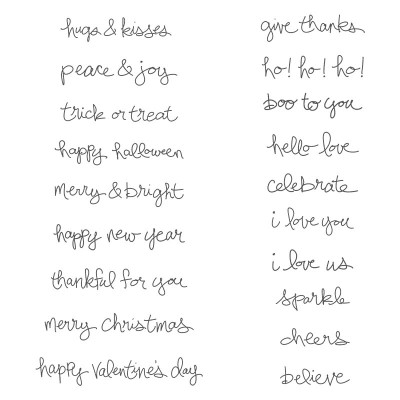 hugs & kisses
peace & joy
trick or treat
happy halloween
merry & bright
happy new year
thankful for you
merry christmas
happy valentine's day
give thanks
ho! ho! ho!
boo to you
hello love
celebrate
i love you
i love us
sparkle
cheers
believe